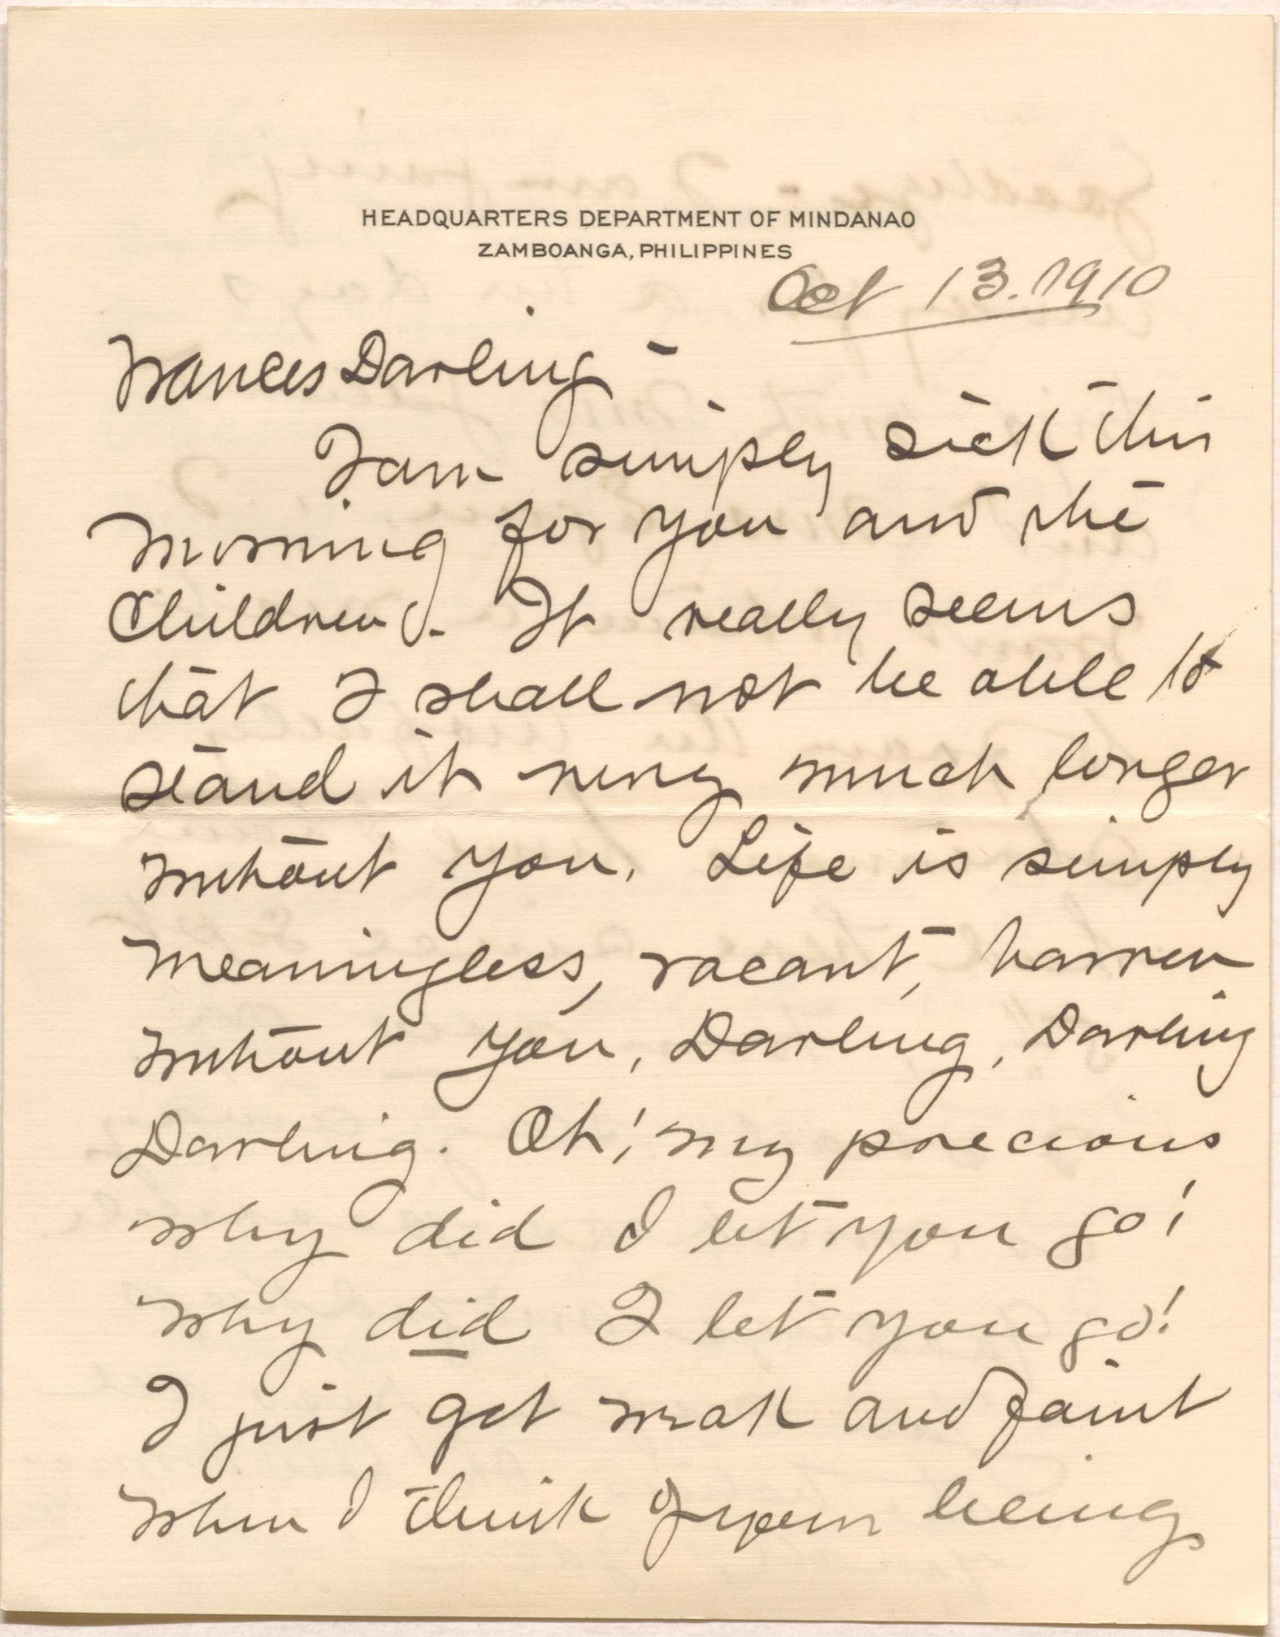 HEADQUARTERS DEPARTMENT OF MINDANAO
ZAMBOANGA, PHILIPPINES
Oct 13. 1910
Frances Darling -
I am simply sick this
morning for you and the
Children. It really seems
that I shall not be able to
stand it very much longer
without you. Life is simply
meaningless, vacant, barren
without you, Darling, Darling
Darling. Oh! my precious
why did I let you go!
why did I let you go!
I just get weak and faint
when I think of your being